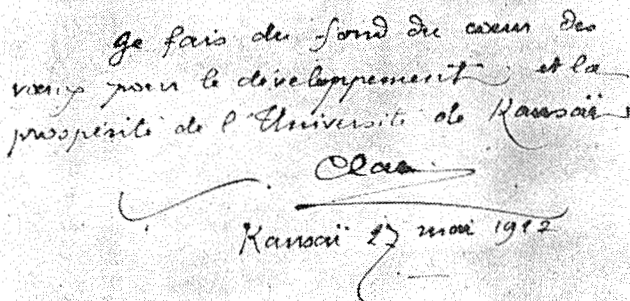 Je fais du fond du cœur des
vœux pour le développement et la
prospérité de l'Université de Kansaï
Kansaï 27 mai